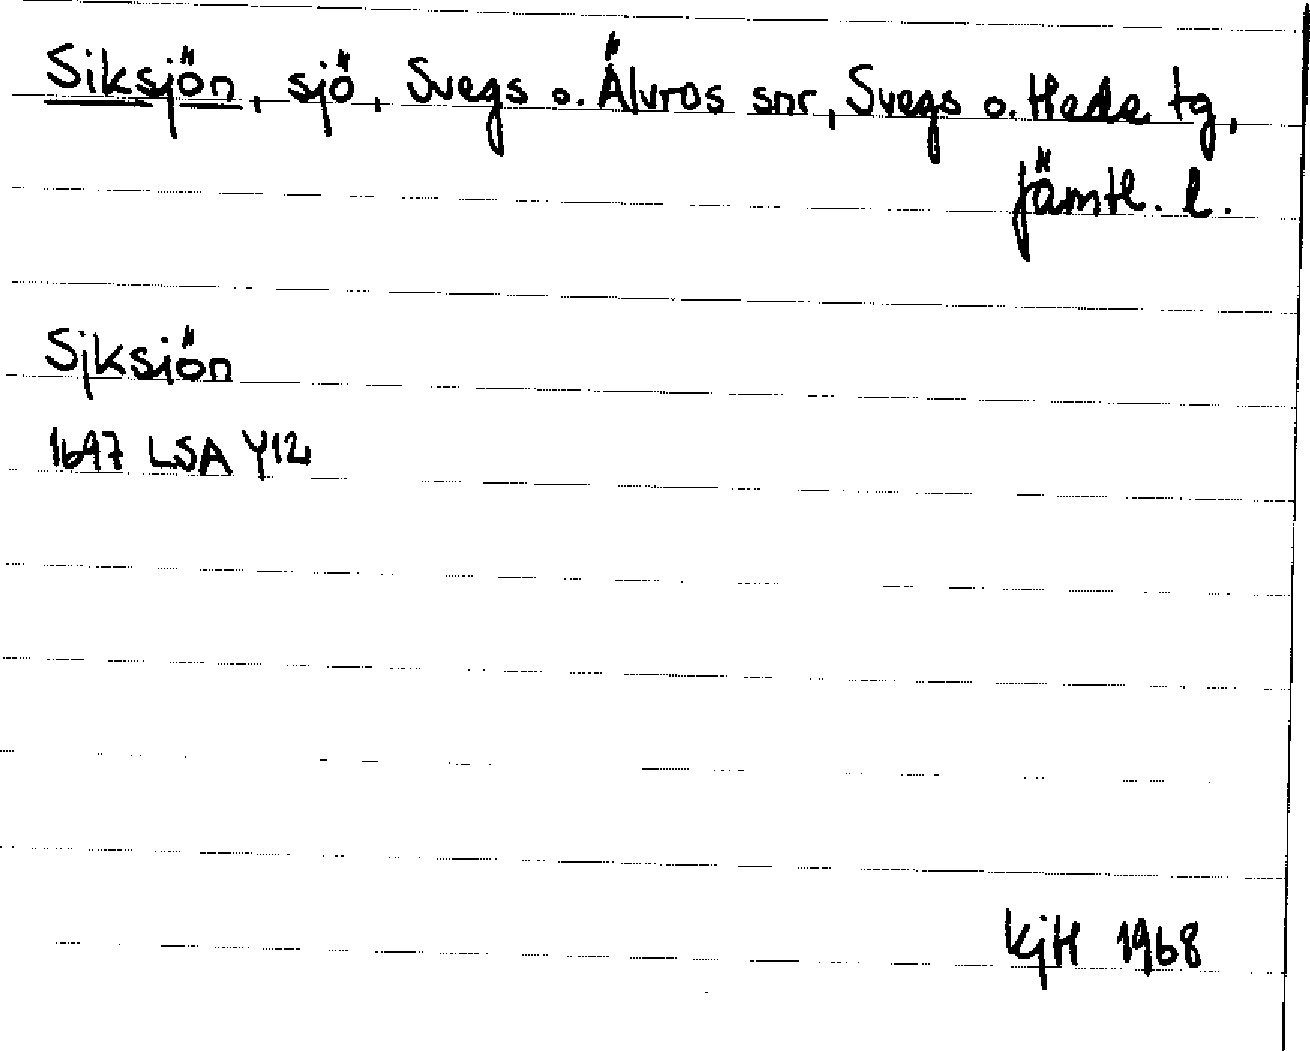 Siksjön, sjö, Svegs o. Älvros snr, Svegs o. Hede tg,
Jämtl. l.
Sjksjön
1697 LSA Y12
KjH 1968